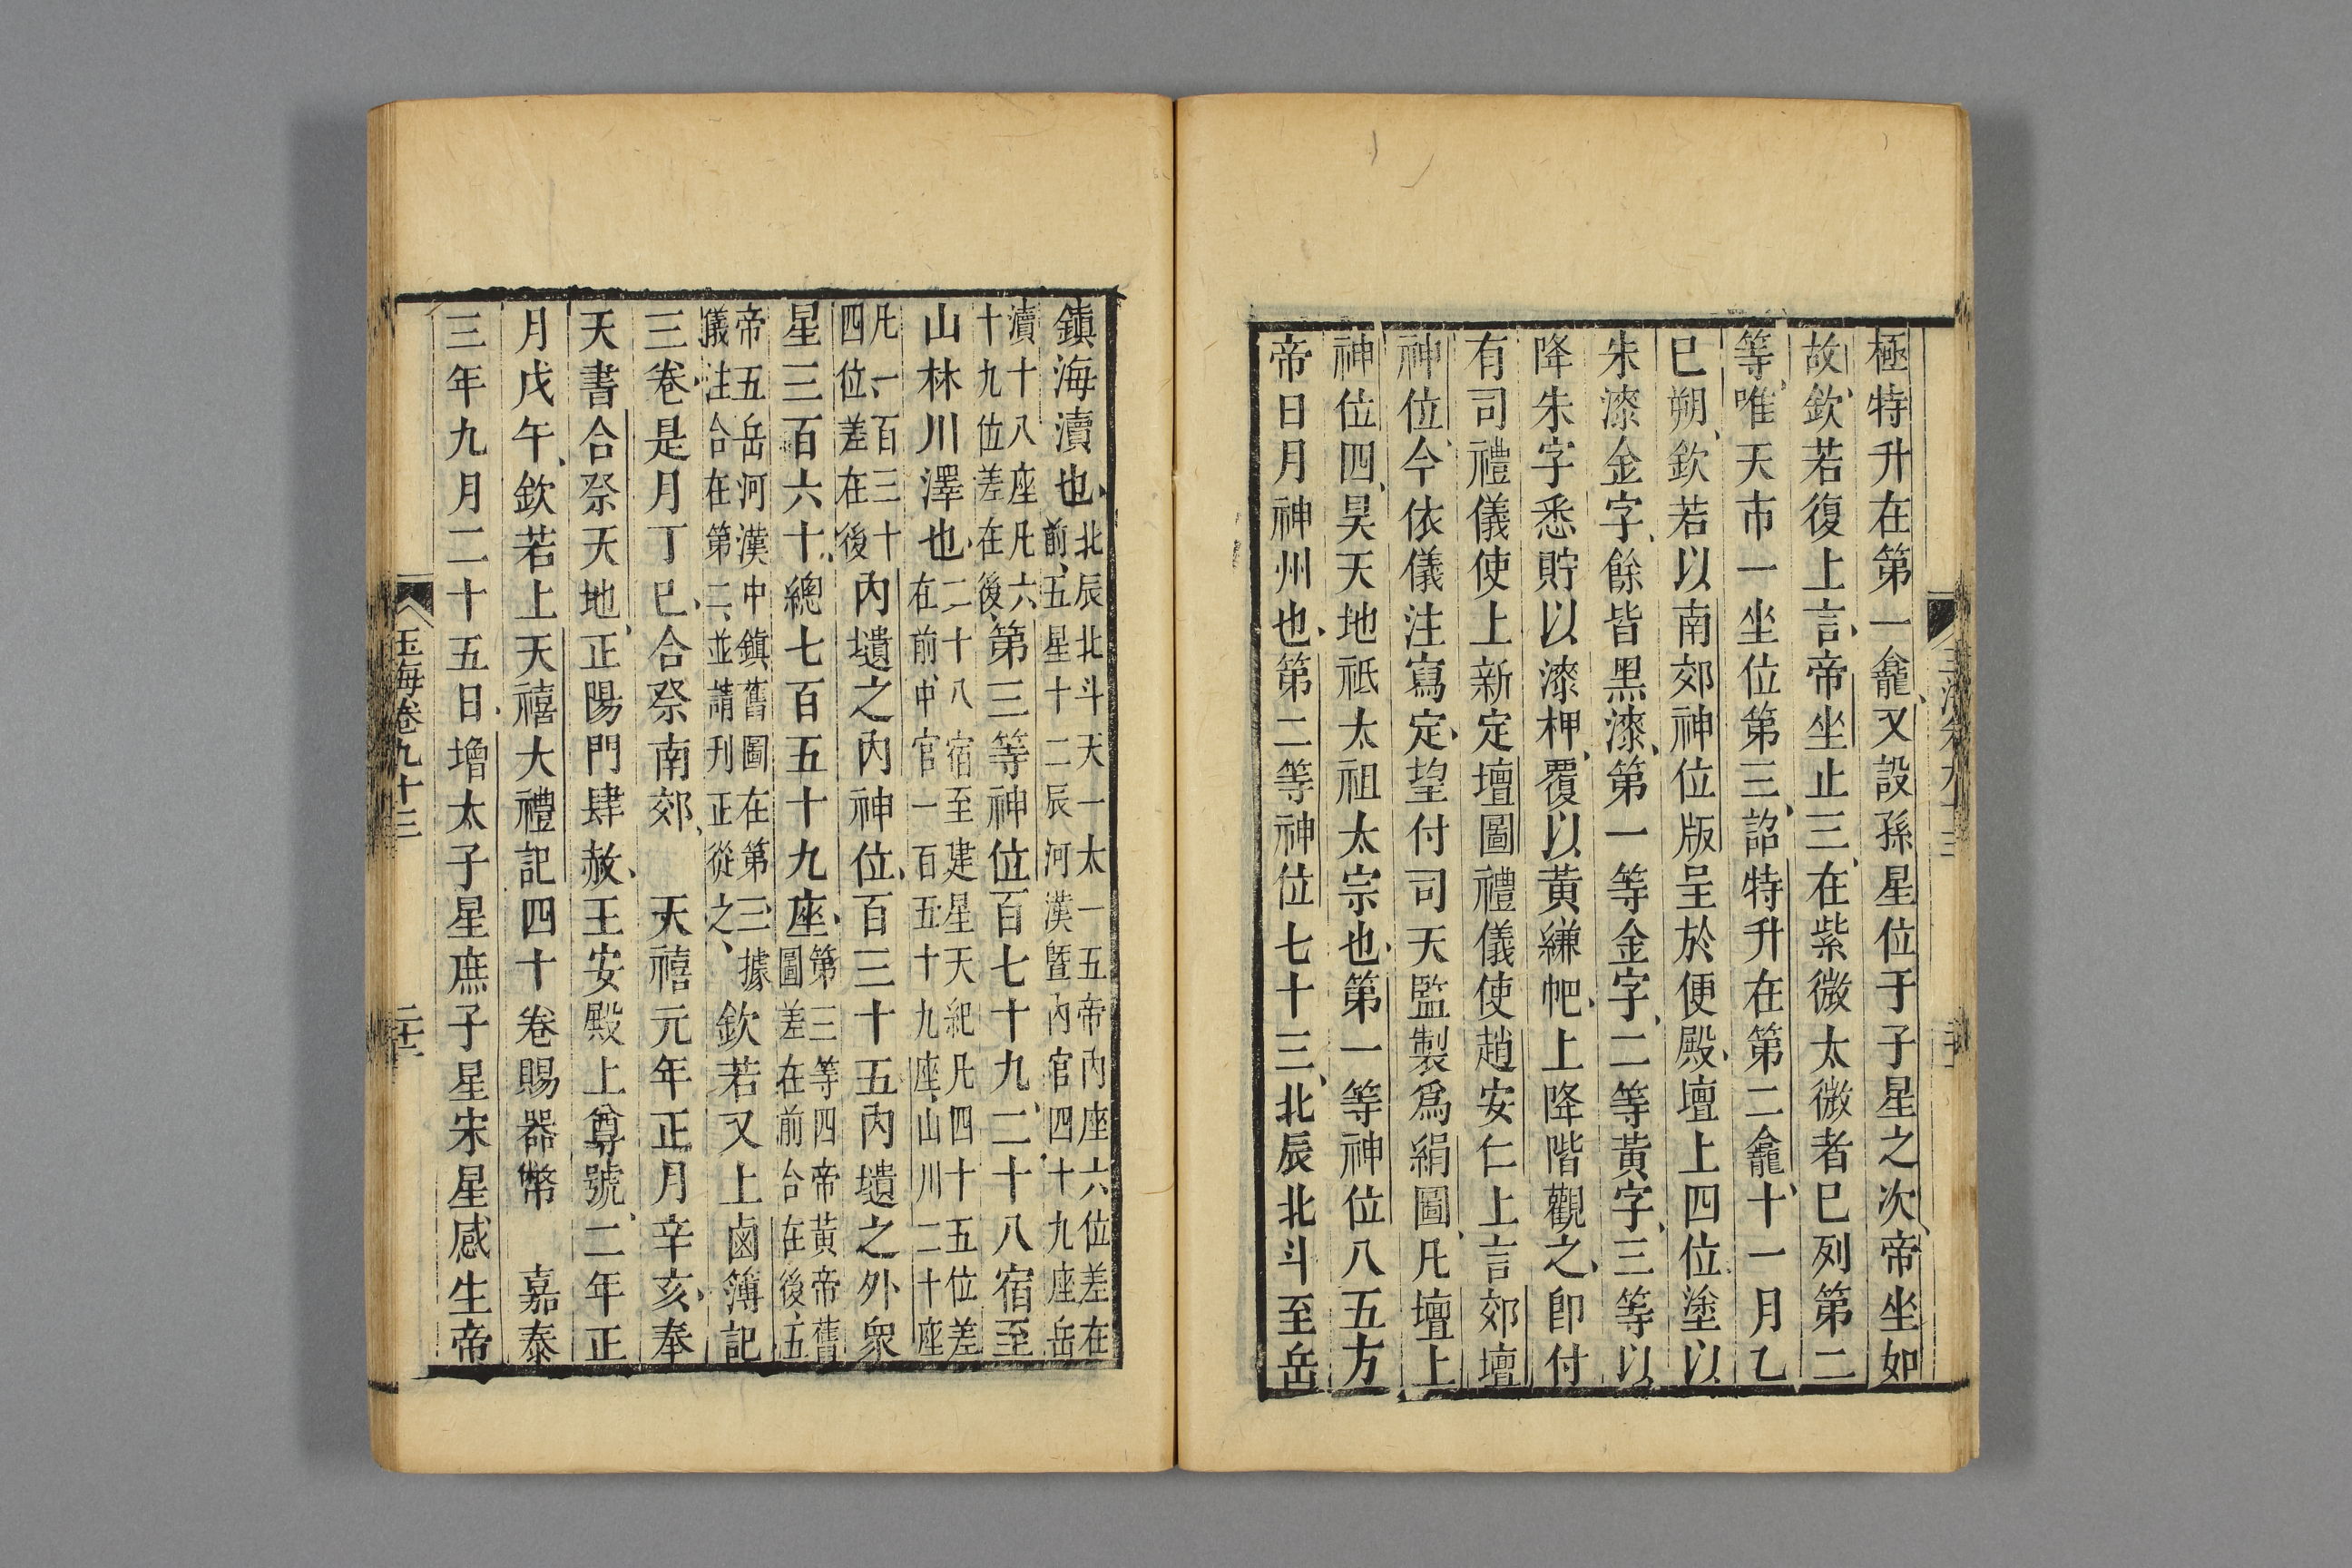 極特升在第一龕又設孫星位于子星之次帝坐如
故欽若復上言帝坐止三在紫微太微者已列第二
等唯天市一坐位第三詔特升在第二龕十一月乙
巳朔欽若以南郊神位版呈於便殿壇上四位塗以
朱漆金字餘皆黑漆第一等金字二等黃字三等以
降朱字悉貯以漆柙覆以黃縑帊上降階觀之卽付
有司禮儀使上新定壇圖禮儀使趙安仁上言郊壇
神位今依儀注寫定望付司天監製爲絹圖凡壇上
神位四昊天地祇太祖太宗也第一等神位八五方
帝日月神州也第二等神位七十三北辰北斗至岳
鎮海瀆也北辰北斗天一太一五帝內座六位差在
前五星十二辰河漢曁內官四十九座岳
瀆十八座凡六
十九位差在後第三等神位百七十九二十八宿至
山林川澤也二十八宿至建星天紀凡四十五位差
在前中官一百五十九座山川二十座
凡一百三十
四位差在後內壝之內神位百三十五內壝之外衆
星三百六十總七百五十九座第三等四帝黃帝舊
圖差在前合在後五
帝五岳河漢中鎮舊圖在第三據
儀注合在第二並請刋正從之欽若又上鹵簿記
三卷是月丁巳合祭南郊　天禧元年正月辛亥奉
天書合祭天地正陽門肆赦王安殿上尊號二年正
月戊午欽若上天禧大禮記四十卷賜器幣　嘉泰
三年九月二十五日增太子星庶子星宋星感生帝
玉海卷九十三